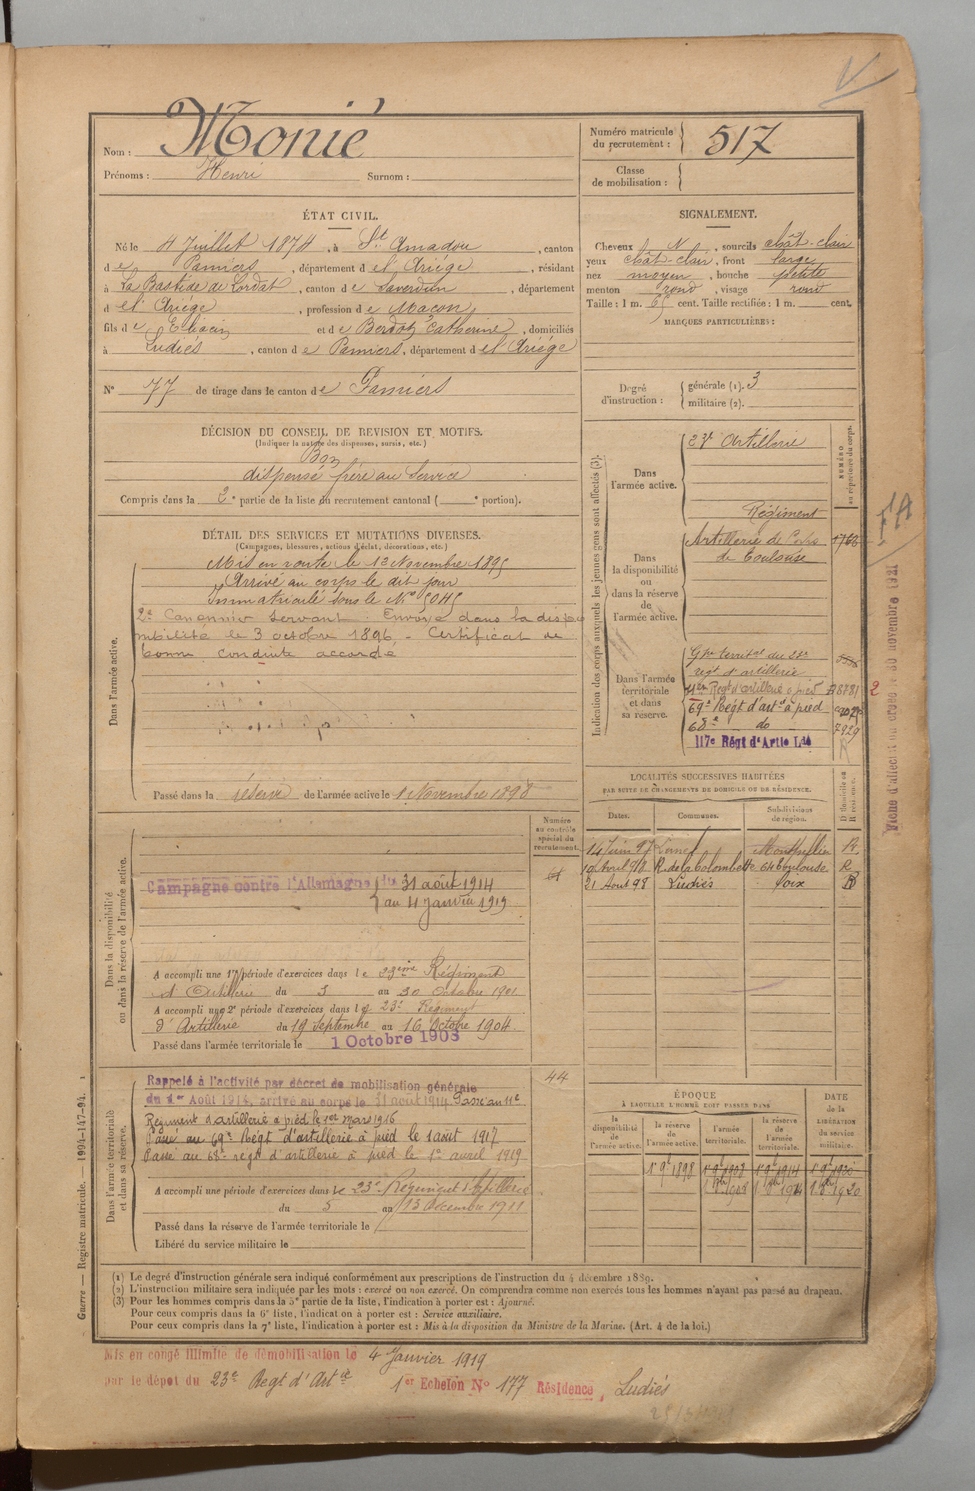 Nom : Monié
Prénoms : Henri Surnom :
Numéro matricule du recrutement : 517
Classe de mobilisation :
ÉTAT CIVIL.
Né le 4 Juillet 1874, à St Amadou, canton
d e Pamiers, département d e l'Ariége, résidant
à La Bastide de Lordat, canton d e Saverdun, département
d e l'Ariége, profession d e Maçon,
fils d e et d e Catherine, domiciliés
à Ludiés, canton d e Pamiers, département d e l'Ariége
N° 77 de tirage dans le canton d e Pamiers
SIGNALEMENT.
Cheveux N, sourcils chât-clair
yeux chât-clair, front large
nez moyen, bouche petite
menton rond, visage rond
Taille : 1 m. 65 cent. Taille rectifiée : 1 m. cent.
MARQUES PARTICULIÈRES :
Degré d'instruction : générale (1). 3
militaire (2).
DÉCISION DU CONSEIL DE REVISION ET MOTIFS.
(Indiquer la nature des dispenses, sursis, etc.)
Bon
dispensé frère au service
Compris dans la 2e partie de la liste du recrutement cantonal ( e portion).
DÉTAIL DES SERVICES ET MUTATIONS DIVERSES.
(Campagnes, blessures, actions d'éclat, décorations, etc.)
Dans l'armée active.
Mis en route le 12 Novembre 1895
Arrivé au corps le dit jour
Immatriculé sous le N° 5045
2e Canonnier Servant. Envoyé dans la dispo
nibilité le 3 octobre 1896 - Certificat de
bonne conduite accordé
Passé dans la réserve de l'armée active le 1 Novembre 1898
Indication des corps auxquels les jeunes gens sont affectés (3).
NUMÉRO au répertoire du corps.
Dans l'armée active.
23e Artillerie
Dans la disponibilité ou dans la réserve de l'armée active.
Régiment
Artillerie de Corps 1766
de Toulouse
Dans l'armée territoriale et dans sa réserve.
Gpe territal du 23e
regt d'artillerie
11er Regt d'artillerie à pied 8781 2
69e Régt d'arte à pied
68e do 7929
117e Régt d'Artie Lde
FA
Fiche d'affectation créée le 30 novembre 1921
LOCALITÉS SUCCESSIVES HABITÉES
PAR SUITE DE CHANGEMENTS DE DOMICILE OU DE RÉSIDENCE.
Dates. Communes. Subdivisions de région. D. Domicile ou R. résidence.
14 Juin 97 Montpellier R.
19 Avril 98 R. de la Colombette 64 Toulouse R
21 Aout 98 Ludiés Foix
Dans la disponibilité ou dans la réserve de l'armée active.
Numéro au contrôle spécial du recrutement.
Campagne contre l'Allemagne du 31 août 1914
au 4 janvier 1919
A accompli une 1re période d'exercices dans le 23ème Régiment
d'Artillerie du 3 au 30 Octobre 1901
A accompli une 2e période d'exercices dans le 23e Régiment
d'Artillerie du 19 Septembre au 16 Octobre 1904
Passé dans l'armée territoriale le 1 Octobre 1908
Dans l'armée territoriale et dans sa réserve.
44
Rappelé à l'activité par décret de mobilisation générale
du 1er Août 1914, arrivé au corps le 31 août 1914 Passé au 11e
Régiment d'artillerie à pied le 1er mars 1916
Passé au 69e Régt d'artillerie à pied le 1 août 1917
Passé au 68e régt d'artillerie à pied le 1er avril 1919
A accompli une période d'exercices dans le 23e Régiment d'Artillerie
du 5 au 13 décembre 1911
Passé dans la réserve de l'armée territoriale le
Libéré du service militaire le
ÉPOQUE
À LAQUELLE L'HOMME DOIT PASSER DANS
la disponibilité de l'armée active. la réserve de l'armée active. l'armée territoriale. la réserve de l'armée territoriale. DATE de la LIBÉRATION du service militaire.
(1) Le degré d'instruction générale sera indiqué conformément aux prescriptions de l'instruction du 4 décembre 1889.
(2) L'instruction militaire sera indiquée par les mots : exercé ou non exercé. On comprendra comme non exercés tous les hommes n'ayant pas passé au drapeau.
(3) Pour les hommes compris dans la 5e partie de la liste, l'indication à porter est : Ajourné.
Pour ceux compris dans la 6e liste, l'indication à porter est : Service auxiliaire.
Pour ceux compris dans la 7e liste, l'indication à porter est : Mis à la disposition du Ministre de la Marine. (Art. 4 de la loi.)
Guerre — Registre matricule. — 1994-147-94.
Mis en congé illimité de démobilisation le 4 Janvier 1919
par le dépôt du 23e Regt d'Artie 1er Echelon N° 177 Résidence, Ludiés